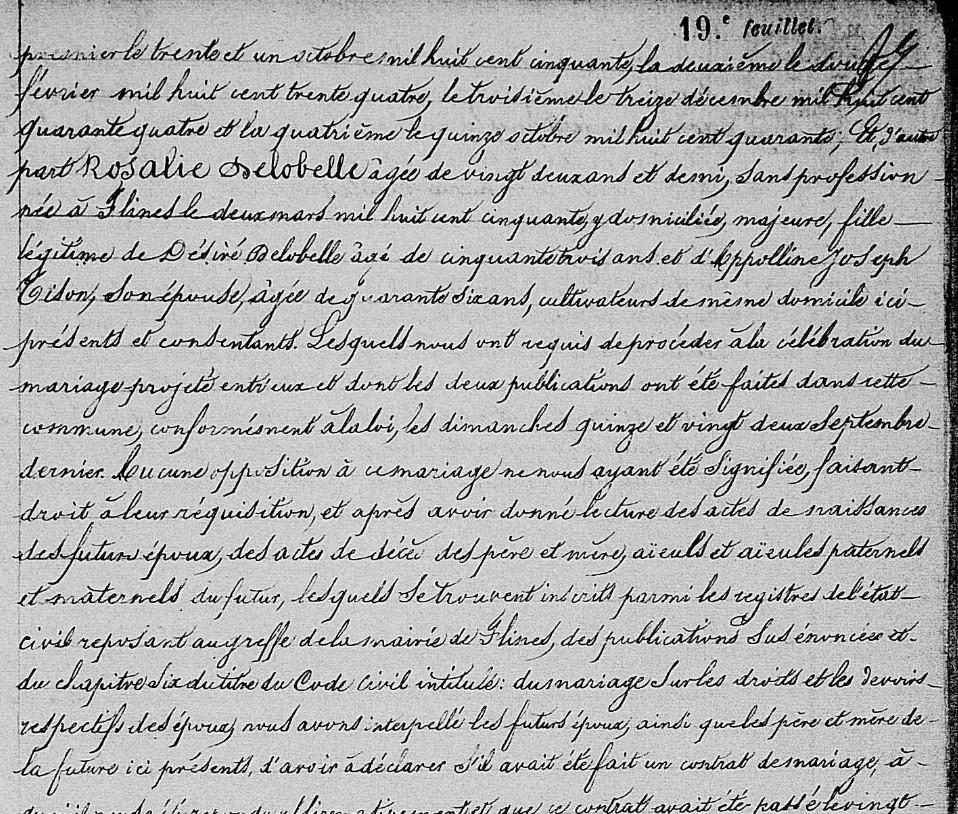 19.e feuillet.
premier le trente et un octobre mil huit cent cinquante, la deuxième le douze
février mil huit cent trente quatre, le troisième le treize décembre mil huit cent
quarante quatre et la quatrième le quinze octobre mil huit cent quarante; Et, d'autre
part Rosalie Delobelle âgée de vingt deux ans et demi, sans profession
née à Flines le deux mars mil huit cent cinquante, y domiciliée, majeure, fille
légitime de Désiré Delobelle âgé de cinquante trois ans et d'Appolline Joseph
Tison, son épouse, âgée de quarante six ans, cultivateurs de même domicile ici
présents et consentants. Lesquels nous ont requis de procéder à la célébration du
mariage projeté entr'eux et dont les deux publications ont été faites dans cette
commune, conformément à la loi, les dimanches quinze et vingt deux Septembre
dernier. Aucune opposition à ce mariage ne nous ayant été signifiée, faisant
droit à leur réquisition, et après avoir donné lecture des actes de naissances
des futurs époux, des actes de décès des père et mère, aïeuls et aïeules paternels
et maternels du futur, lesquels se trouvent inscrits parmi les registres de l'état
civil reposant au greffe de la mairie de Flines, des publications sus énoncées et
du chapitre six du titre du Code Civil intitulé: du mariage sur les droits et les devoirs
respectifs des époux, nous avons interpellé les futurs époux, ainsi que les père et mère de
la future ici présents, d'avoir à déclarer s'il avait été fait un contrat de mariage, à
que ce contrat avait été passé le vingt